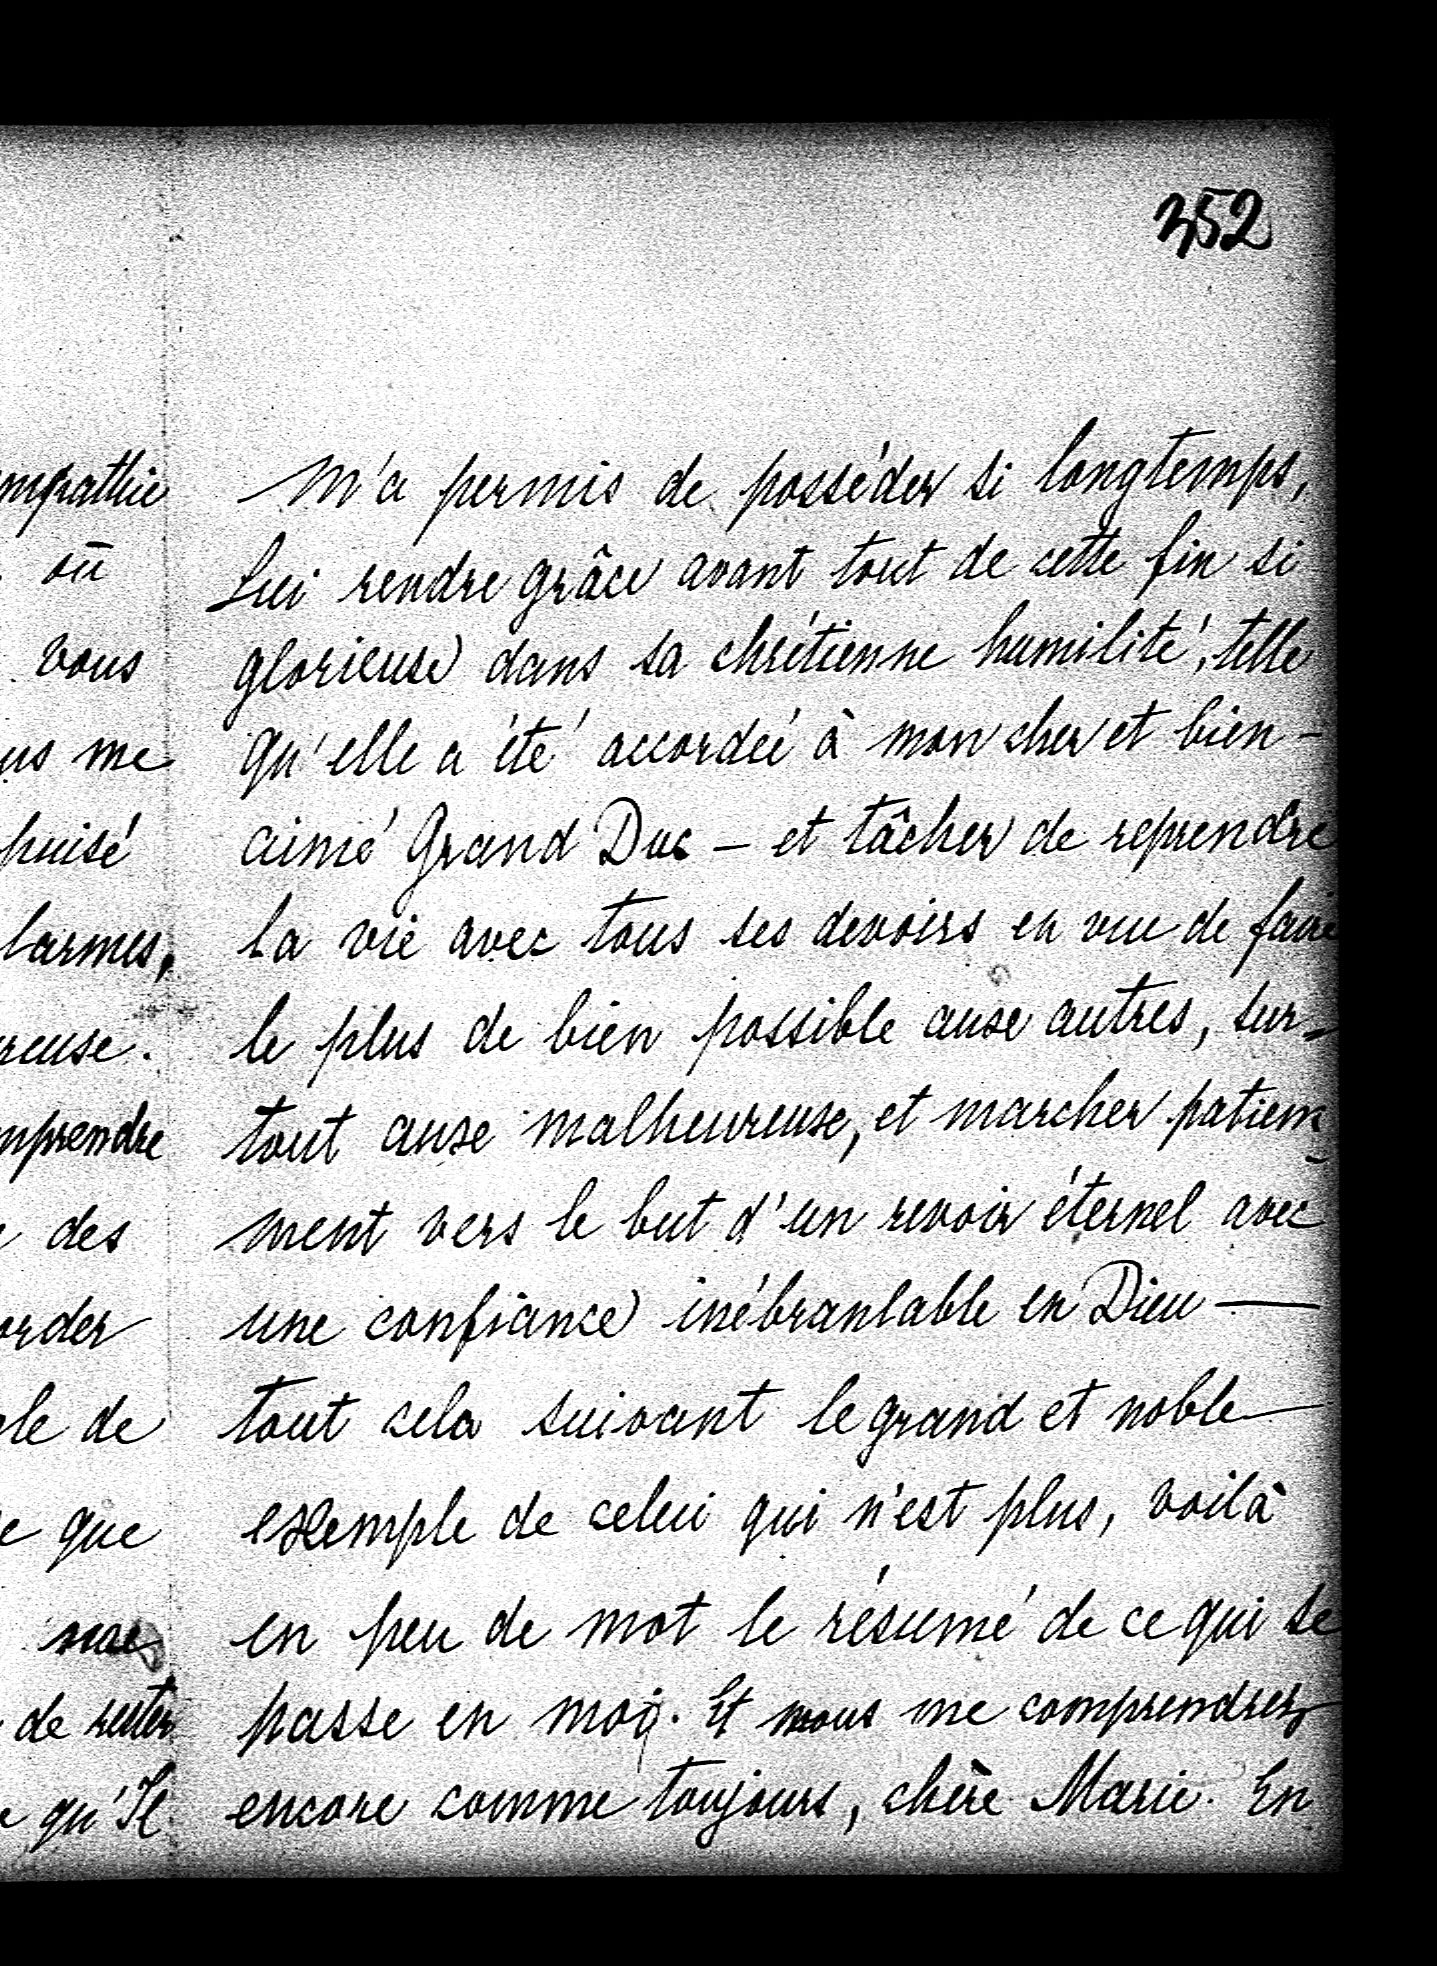 352
mpathie
où
vous
us me
puisé
larmes,
reuse.
mprendre
des
order
ple de
e que
me
de rester
qu'Il
m'a permis de posséder si longtemps,
Lui rendre grâce avant tout de cette fin si
glorieuse dans sa chrétienne humilité, telle
qu'elle a été accordée à mon cher et bien-
aimé Grand Duc – et tâcher de reprendre
la vie avec tous ses devoirs en vue de faire
le plus de bien possible aux autres, sur-
tout aux malheureux, et marcher patiem-
ment vers le but d'un revoir éternel avec
une confiance inébranlable en Dieu —
tout cela suivant le grand et noble
exemple de celui qui n'est plus, voilà
en peu de mot le résumé de ce qui se
passe en moi. Et vous me comprendrez
encore comme toujours, chère Marie. En